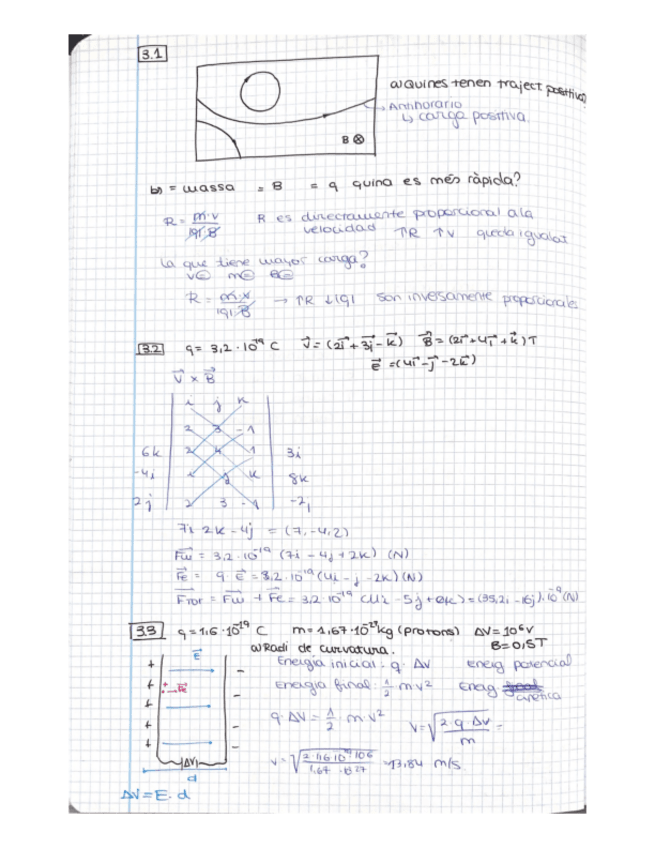 3.1
a) Quines tenen traject positiva?
Antihorario
↳ carga positiva.
B ⊗
b) = massa = B = q quina es més ràpida?
R = m·v / |q|·B R es directamente proporcional a la
velocidad ↑R ↑v queda igualat
La que tiene mayor carga?
v= m= B=
R = m·v / |q|·B → ↑R ↓|q| son inversamente proporcionales
3.2 q = 3,2·10⁻¹⁹ C v⃗ = (2i⃗ + 3j⃗ - k⃗) B⃗ = (2i⃗ + 4j⃗ + k⃗) T
e⃗ = (4i⃗ - j⃗ - 2k⃗)
v⃗ × B⃗
i j k
2 3 -1
6k 2 4 1 3i
-4i i j k 8k
2j 2 3 -1 -2j
7i 2k - 4j = (7, -4, 2)
Fm = 3,2·10⁻¹⁹ (7i - 4j + 2k) (N)
Fe = q·e⃗ = 3,2·10⁻¹⁹ (4i - j - 2k) (N)
Ftot = Fm + Fe = 3,2·10⁻¹⁹ (11i - 5j + 0k) = (35,2i - 16j)·10⁻¹⁹ (N)
3.3 q = 1,6·10⁻¹⁹ C m = 1,67·10⁻²⁷ kg (protons) ΔV = 10⁶ V
B = 0,5T
a) Radi de curvatura.
E⃗
Energía inicial: q·ΔV energ potencial
Fe
Energia final: ½ m v² Energ cinética
q·ΔV = ½ m v² v = √(2·q·ΔV / m) =
|ΔV|
v = √(2·1,6·10⁻¹⁹·10⁶ / 1,67·10⁻²⁷) = 13,84 m/s
d
ΔV = E·d